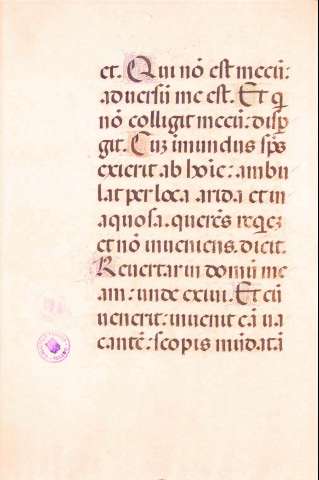 et. Qui nō est mecū:
aduersū me est. Et q̄
nō colligit mecū: disp̄
git. Cuȝ īmundus sp̄s
exierit ab hoīe: ambu
lat per loca arida et in
aquosa. querēs reqeȝ
et nō inueniens. dicit.
Reuertar in domū me
am: unde exiui. Et cū
uenerit: inuenit eā ua
cantē: scopis mūdatā